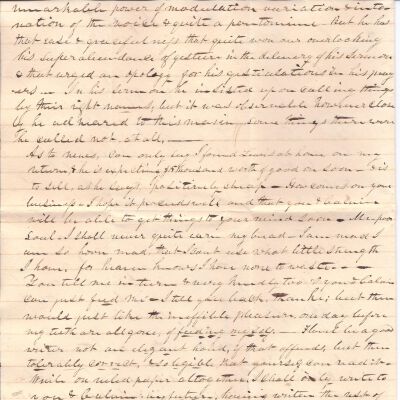 remarkable power of modulation variation & into-
nation of the voice & quite a pantomime. But he has
that ease & gracefulness that quite won our overlooking
his super abundance of gesture in the delivery of his sermon
& that urged an apology for his gesticulations in his pray
ers — In his sermon he insisted upon calling things
by their right names, but it was observable however close
ly he adhered to this maxim, some things there were
he called not at all, —
As to news, can only say I found Lewis at home on my
return & he is expecting thousand worth of good on soon — His
to sell, as he says, positively cheap — How comes on your
business — I hope it proceeds well and that you &
will be able to get things to your mind soon — My poor
Soul — I shall never quite earn my bread — I am mad I
am so born mad, that I cant use what little strength
I have, for heaven knows I have none to waste. —
You tell me in turn & very kindly too if you & Calvin
can just feed me — I tell you back, thank'; but then
would just like the ineffible pleasure, one day before
my teeth are all gone, of feeding myself. — I have been a good
writer not an elegant hand, if that offends, but then
tolerably correct, & so legible that yourself can read it —
While on ruled paper altogether, I shall only write to
you & Calvin in future, having written the rest of